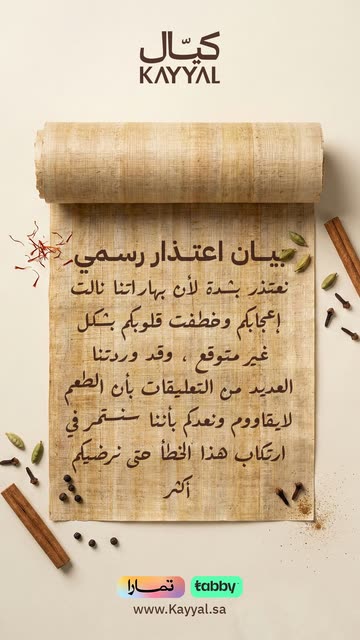 كيّال
KAYYAL
بيـان اعتـذار رسـمي
نعتذر بشدة لأن بهاراتنا نالت
إعجابكم وخطفت قلوبكم بشكل
غير متوقع ، وقد وردتنا
العديد من التعليقات بأن الطعم
لايقاووم ونعدكم بأننا سنستمر في
ارتكاب هذا الخطأ حتى نرضيكم
أكثر
تمارا tabby
www.Kayyal.sa